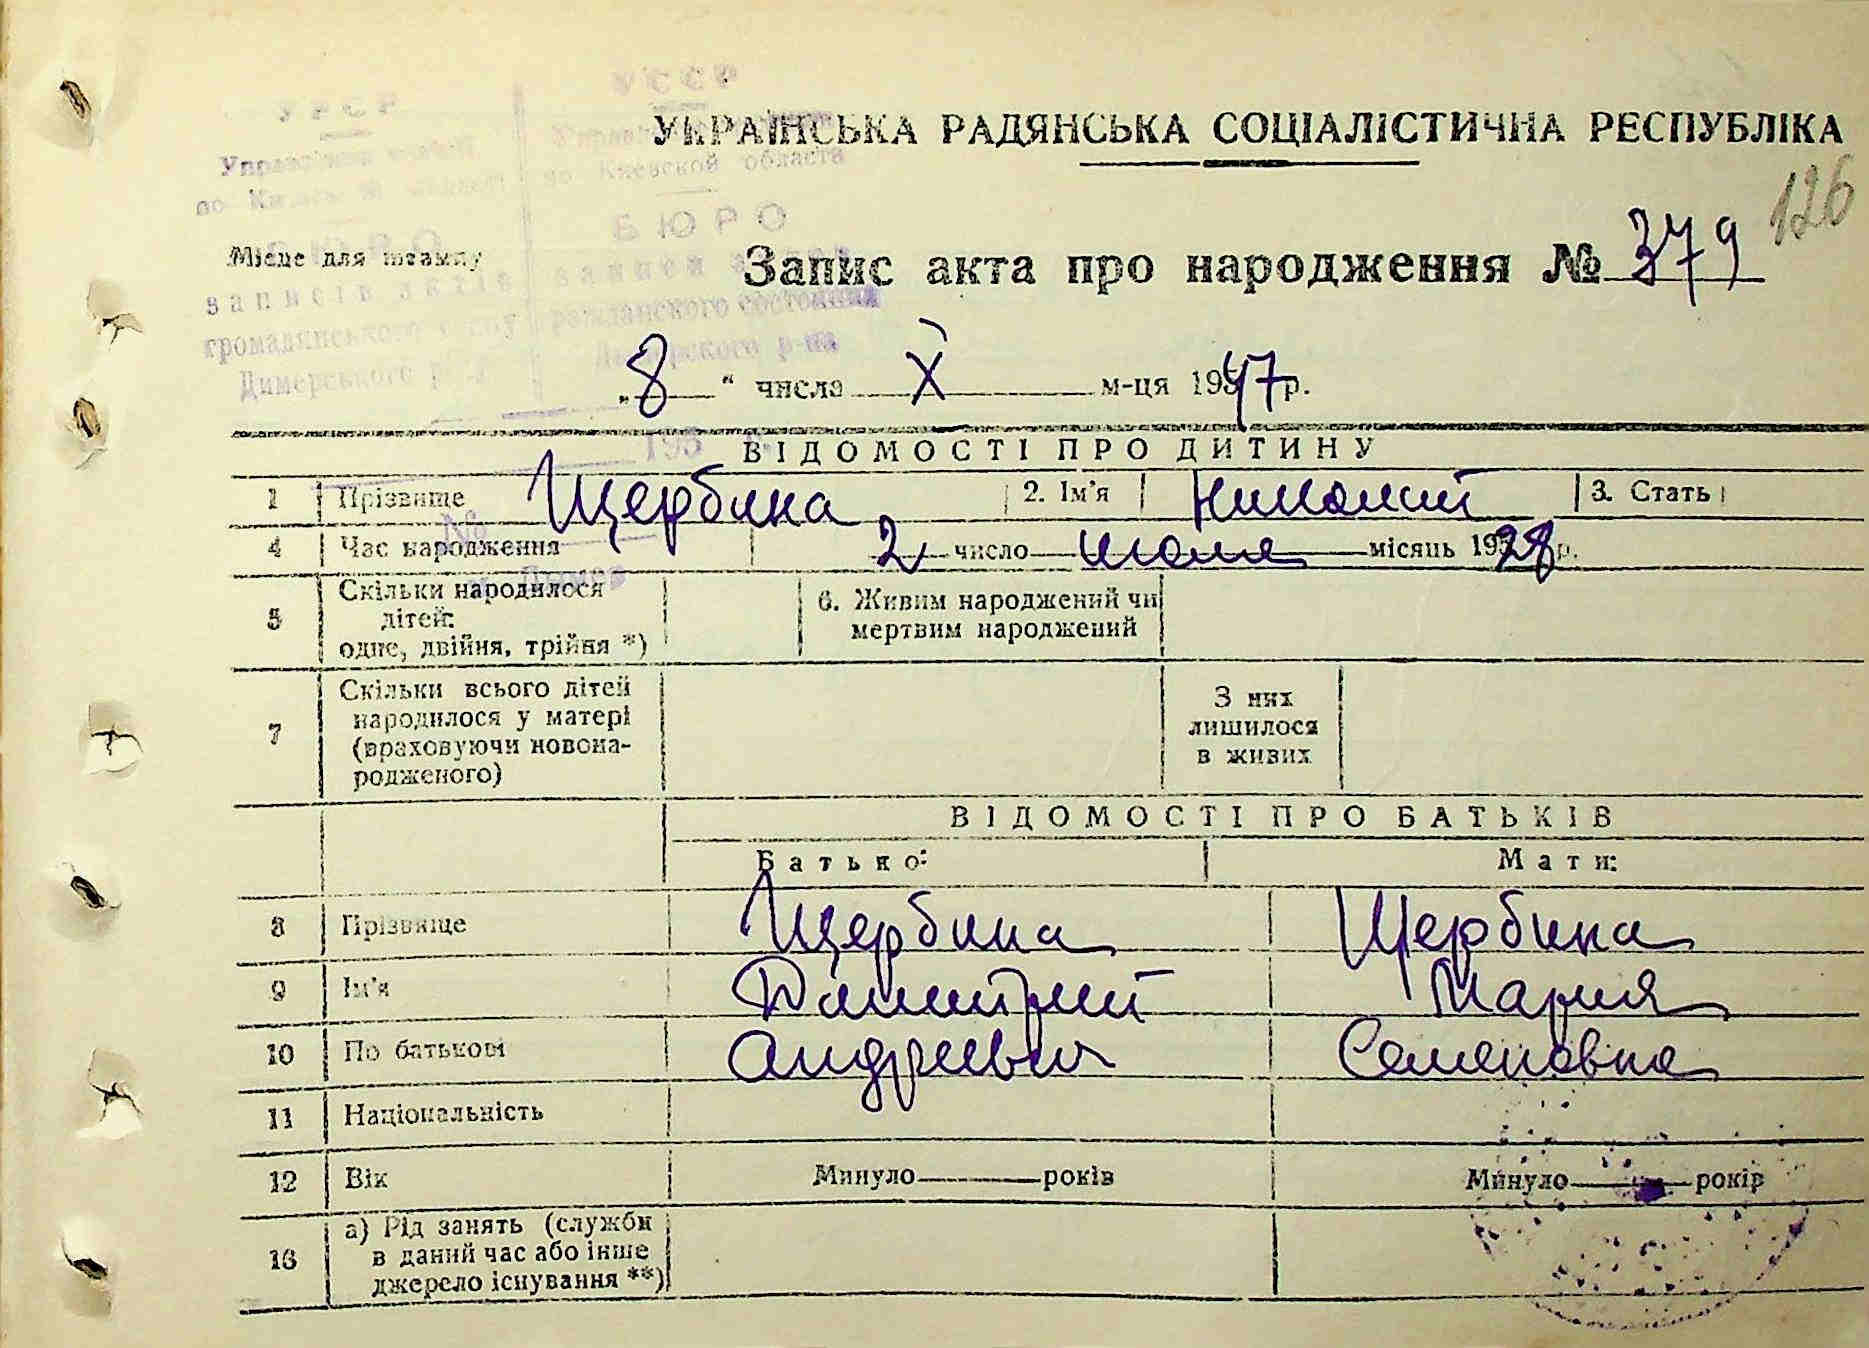 УССР
УРСР
УКРАЇНСЬКА РАДЯНСЬКА СОЦІАЛІСТИЧНА РЕСПУБЛІКА
по Киевской области
126
БЮРО
БЮРО
Місце для штампу
Запис акта про народження № 379
записів актів
записи
громадянського стану
гражданского состояния
Димерського р-ну
Дымерского р-на
„8“ числа X м-ця 1947 р.
195
ВІДОМОСТІ ПРО ДИТИНУ
1 Прізвище Щербина 2. Ім'я Николай 3. Стать
№
4 Час народження 2 число июля місяць 1928 р.
п. Дымер
5 Скільки народилося дітей: одне, двійня, трійня *) 6. Живим народжений чи мертвим народжений
7 Скільки всього дітей народилося у матері (враховуючи новонародженого) З них лишилося в живих
ВІДОМОСТІ ПРО БАТЬКІВ
Батько: Мати:
8 Прізвище Щербина Щербина
9 Ім'я Димитрий Мария
10 По батькові Андреевич Семеновна
11 Національність
12 Вік Минуло років Минуло років
13 а) Рід занять (служби в даний час або інше джерело існування **)